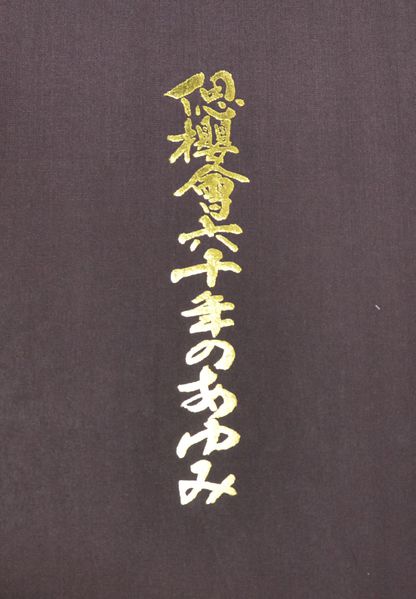 偲櫻會六十年のあゆみ